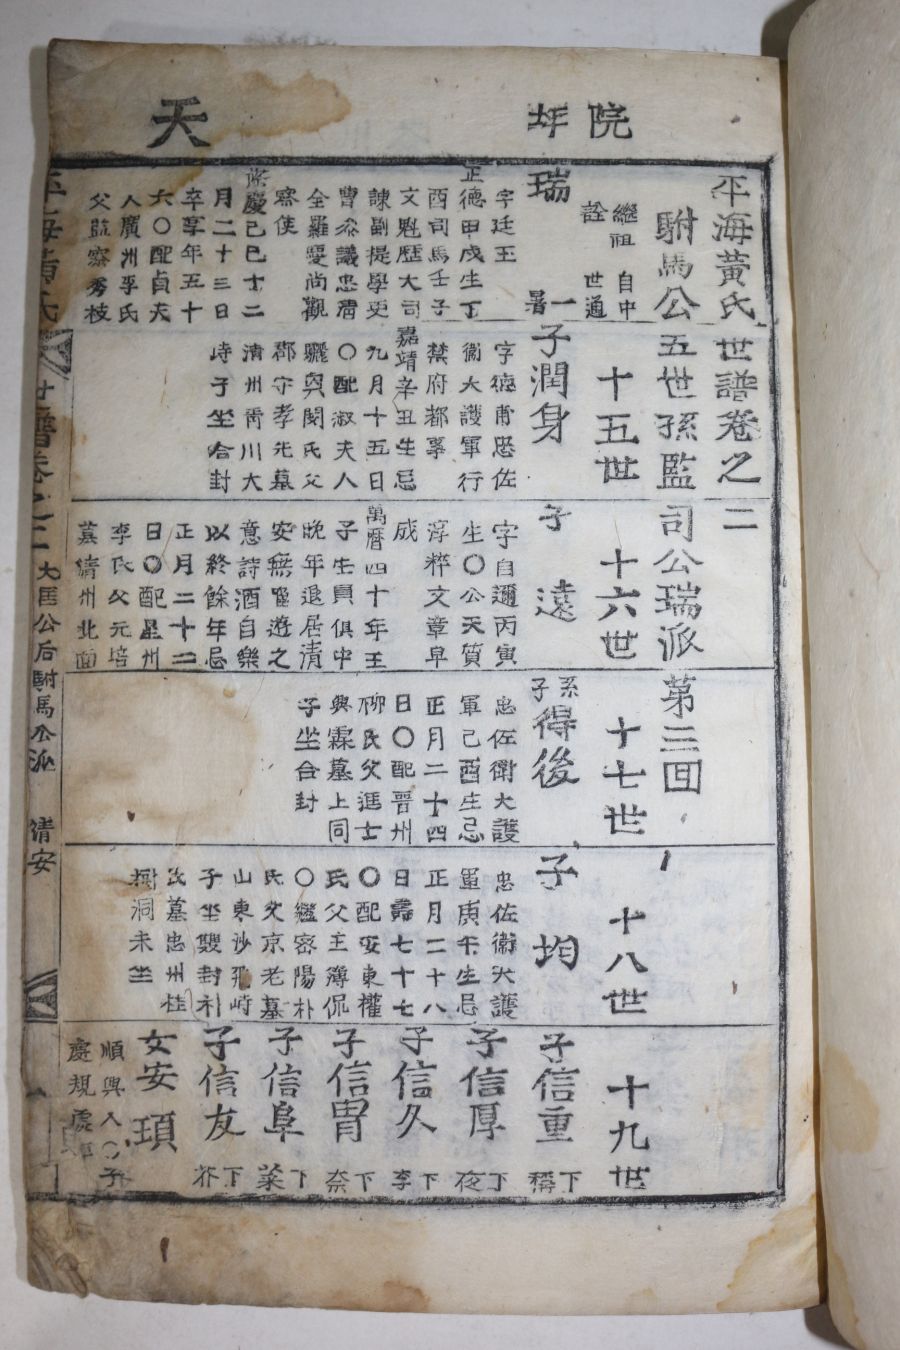 天
院
㘰
平海黃氏世譜卷之二
駙馬公五世孫監司公瑞派 第三回
繼祖
詮
自中
世通
十五世
十六世
十七世
十八世
十九世
瑞
字廷玉
正德甲戌生丁
酉司馬壬子
文魁歷大司
諫副提學吏
曹參議忠淸
全羅慶尙觀
察使
隆慶己巳十二
月二十三日
卒享年五十
六〇配貞夫
人廣州李氏
父監察秀枝
子潤身
字德甫忠佐
衛大護軍行
禁府都事
嘉靖辛丑生忌
九月十五日
〇配淑夫人
驪興閔氏父
郡守孝先墓
淸州靑川大
峙子坐合封
子 遠
字自邇丙寅
生〇公天質
淳粹文章早
成
萬曆四十年壬
子生員俱中
晩年退居淸
安無窟遊之
意詩酒自樂
以終餘年忌
正月二十二
日〇配星州
李氏父元培
墓淸州北面
系子得後
忠佐衛大護
軍己酉生忌
正月二十四
日〇配晋州
柳氏父進士
興霖墓上同
子坐合封
子 均
忠佐衛大護
軍庚午生忌
正月二十八
日壽七十七
〇配安東權
氏父主簿侃
〇繼密陽朴
氏父京老墓
山東沙飛峙
子坐雙封朴
氏墓忠州桂
樹洞未坐
子信重
下
子信厚
下夜
子信久
下李
子信胄
下柰
子信阜
下菜
子信友
下芥
女安頊
順興人〇子
慶規
平海黃氏
世譜卷之二
大匡公后駙馬公派
淸安